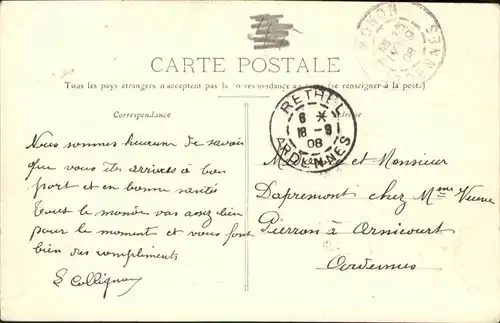 CARTE POSTALE
Tous les pays étrangers n'acceptent pas la correspondance au (se renseigner à la poste)
Correspondance
RETHEL
6 *
18 - 9
08
ARDENNES
08
Nous sommes heureux de savoir
que vous êtes arrivés à bon
port et en bonne santé
Tout le monde vas assez bien
pour le moment et vous font
bien des compliments
E Collignon
et Monsieur
Dapremont chez Mme Veuve
Pierron à Arnicourt
Ardennes